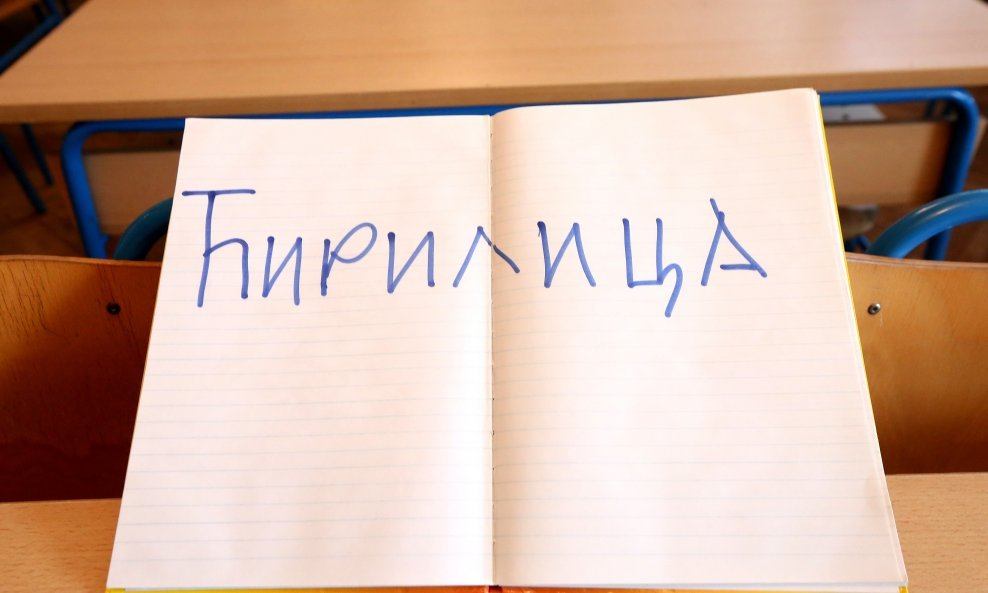 Ћирилица